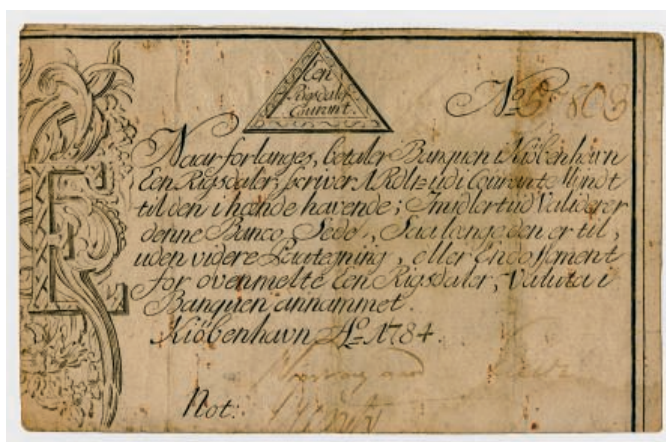 Een
Rigsdaler
Courant.
No 803
Naar forlanges, betaler Banquen i Kiöbenhavn
Een Rigsdaler, skriver 1 Rdlr: udi Courant Myndt
til den i hænde havende; Imidlertiid Validerer
denne Banco-Sedel, Saa længe den er til,
uden videre Paategning, eller Endossement
for ovenmelte Een Rigsdaler, Valuta i
Banquen annammet.
Kiöbenhavn Ao 1784.
Not: